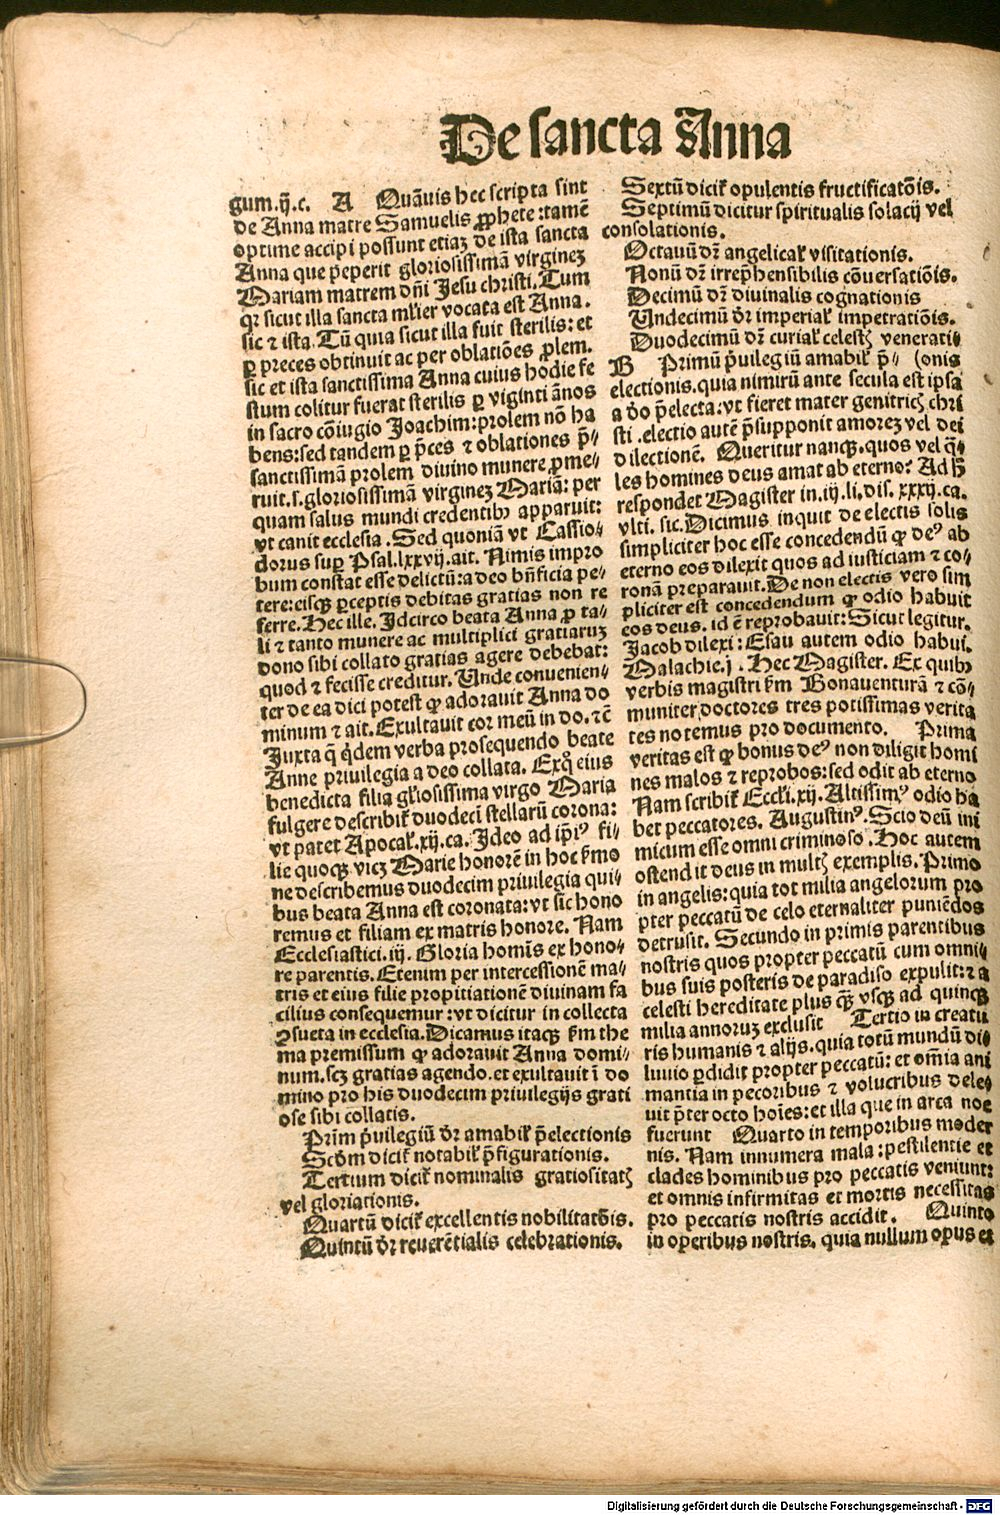 De sancta Anna
gum.ij.c. A Quãuis hec scripta sint
de Anna matre Samuelis ꝓphete: tamẽ
optime accipi possunt etiaꝫ de ista sancta
Anna que peperit gloriosissimã virgineꝫ
Mariam matrem dñi Jesu christi. Tum
qꝛ sicut illa sancta mĺier vocata est Anna.
sic ⁊ ista. Tũ quia sicut illa fuit sterilis: et
ꝑ preces obtinuit ac per oblatiões ꝓlem.
sic et ista sanctissima Anna cuius hodie fe
stum colitur fuerat sterilis ꝑ viginti ãnos
in sacro cõiugio Joachim: prolem nõ ha
bens: sed tandem ꝑ p̃ces ⁊ oblationes p̃-
sanctissimã prolem diuino munere ꝓme-
ruit.s.gloriosissimã virgineꝫ Mariã: per
quam salus mundi credentibꝰ apparuit:
vt canit ecclesia. Sed quoniã vt Cassio-
dorus suꝑ Psal.lxxvij.ait. Nimis impro
bum constat esse delictũ: a deo bñficia pe-
tere: eisqꝫ ꝑceptis debitas gratias non re
ferre. Hec ille. Idcirco beata Anna ꝓ ta-
li ⁊ tanto munere ac multiplici gratiaruꝫ
dono sibi collato gratias agere debebat:
quod ⁊ fecisse creditur. Unde conuenien-
ter de ea dici potest ꝙ adorauit Anna do
minum ⁊ ait. Exultauit cor meũ in do.⁊c̃
Juxta q̃ q̇dem verba prosequendo beate
Anne priuilegia a deo collata. Exq̃ eius
benedicta filia gl̃iosissima virgo Maria
fulgere describit̃ duodeci stellarũ corona:
vt patet Apocal̃.xij.ca. Ideo ad ip̃iꝰ fi-
lie quoqꝫ viꝫ Marie honorẽ in hoc s̃mo
ne describemus duodecim priuilegia qui-
bus beata Anna est coronata: vt sic hono
remus et filiam ex matris honore. Nam
Ecclesiastici.iij. Gloria homĩs ex hono-
re parentis. Etenim per intercessionẽ ma-
tris et eius filie propitiationẽ diuinam fa
cilius consequemur: vt dicitur in collecta
ꝯsueta in ecclesia. Dicamus itaqꝫ s̃m the
ma premissum ꝙ adorauit Anna domi-
num.scꝫ gratias agendo.et exultauit ĩ do
mino pro his duodecim priuilegijs grati
ose sibi collatis.
Prim̃ p̃uilegiũ dr̃ amabil̃ p̃electionis
Scd̃m dicit̃ notabil̃ p̃figurationis.
Tertium dicit̃ nominalis gratiositatꝭ
vel gloriationis.
Quartũ dicit̃ excellentis nobilitatis.
Quintũ dr̃ reuerẽtialis celebrationis.
Sextũ dicit̃ opulentis fructificatõis.
Septimũ dicitur spiritualis solacij vel
consolationis.
Octauũ dr̃ angelical̃ visitationis.
Nonũ dr̃ irrep̃hensibilis cõuersatiõis.
Decimũ dr̃ diuinalis cognationis
Undecimũ dr̃ imperial̃ impetratiõis.
Duodecimũ dr̃ curial̃ celestꝭ venerati-
B Primũ p̃uilegiũ amabil̃ p̃- (onis
electionis.quia nimirũ ante secula est ipsa
a do p̃electa: vt fieret mater genitricꝭ chri
sti.electio autẽ p̃supponit amoreꝫ vel dei
dilectionẽ. Queritur nanqꝫ.quos vel q̃-
les homines deus amat ab eterno? Ad h̃
respondet Magister in.iij.li.dis.xxxij.ca.
vlti.sic. Dicimus inquit de electis solis
simpliciter hoc esse concedendũ ꝙ deꝰ ab
eterno eos dilexit quos ad iusticiam ⁊ co-
ronã preparauit. De non electis vero sim
pliciter est concedendum ꝙ odio habuit
eos deus. id ẽ reprobauit: Sicut legitur.
Jacob dilexi: Esau autem odio habui.
Malachie.j. Hec Magister. Ex quibꝰ
verbis magistri s̃m Bonauenturã ⁊ cõ-
muniter doctores tres potissimas verita
tes notemus pro documento. Prima
veritas est ꝙ bonus deꝰ non diligit homi
nes malos ⁊ reprobos: sed odit ab eterno
Nam scribit̃ Eccl̃i.xij. Altissimꝰ odio ha
bet peccatores. Augustinꝰ. Scio deũ ini
micum esse omni criminoso. Hoc autem
ostendit deus in multꝭ exemplis. Primo
in angelis: quia tot milia angelorum pro
pter peccatũ de celo eternaliter puniẽdos
detrusit. Secundo in primis parentibus
nostris quos propter peccatũ cum omni-
bus suis posteris de paradiso expulit: ⁊ a
celesti hereditate plus q̃ꝫ vsqꝫ ad quinqꝫ
milia annoruꝫ exclusit Tertio in creatu
ris humanis ⁊ alijs.quia totũ mundũ di-
luuio ꝑdidit propter peccatũ: et om̃ia ani
mantia in pecoribus ⁊ volucribus dele-
uit p̃ter octo hoĩes: et illa que in arca noe
fuerunt Quarto in temporibus moder
nis. Nam innumera mala: pestilentie et
clades hominibus pro peccatis veniunt:
et omnis infirmitas et mortis necessitas
pro peccatis nostris accidit. Quinto
in operibus nostris. quia nullum opus et
Digitalisierung gefördert durch die Deutsche Forschungsgemeinschaft - DFG